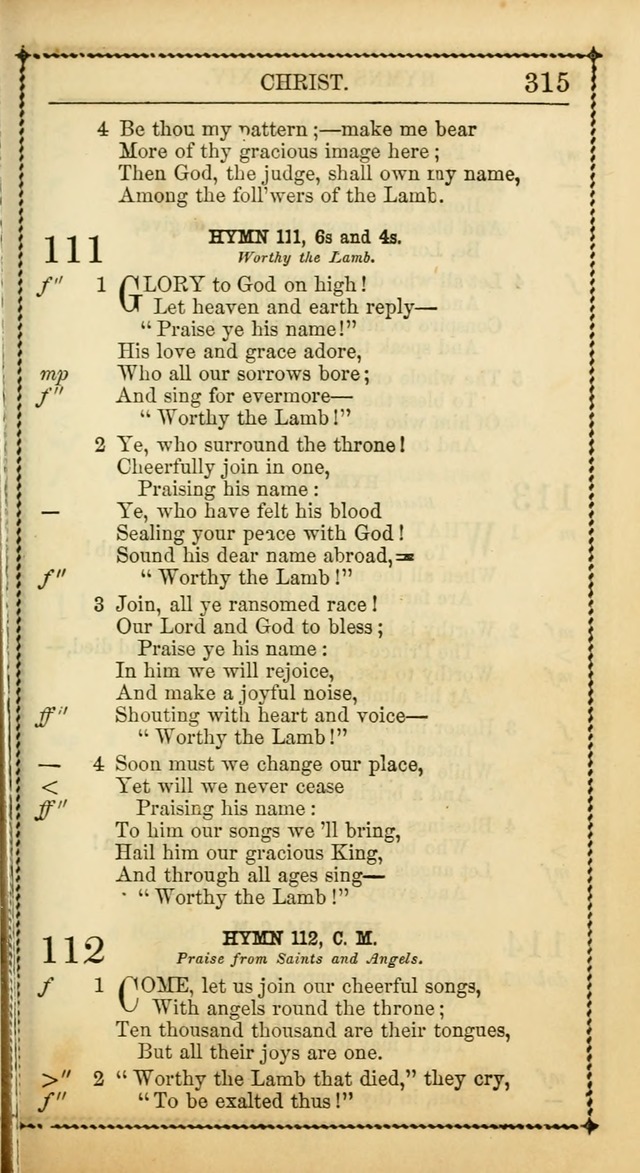 CHRIST. 315
4 Be thou my pattern;—make me bear
More of thy gracious image here;
Then God, the judge, shall own my name,
Among the foll'wers of the Lamb.
111 HYMN 111, 6s and 4s.
Worthy the Lamb.
f" 1 GLORY to God on high!
Let heaven and earth reply—
"Praise ye his name!"
His love and grace adore,
mp Who all our sorrows bore;
f" And sing for evermore—
"Worthy the Lamb!"
2 Ye, who surround the throne!
Cheerfully join in one,
Praising his name:
— Ye, who have felt his blood
Sealing your peace with God!
Sound his dear name abroad,=
f" "Worthy the Lamb!"
3 Join, all ye ransomed race!
Our Lord and God to bless;
Praise ye his name:
In him we will rejoice,
And make a joyful noise,
ff" Shouting with heart and voice—
"Worthy the Lamb!"
— 4 Soon must we change our place,
< Yet will we never cease
ff" Praising his name:
To him our songs we 'll bring,
Hail him our gracious King,
And through all ages sing—
"Worthy the Lamb!"
112 HYMN 112, C. M.
Praise from Saints and Angels.
f 1 COME, let us join our cheerful songs,
With angels round the throne;
Ten thousand thousand are their tongues,
But all their joys are one.
>" 2 "Worthy the Lamb that died," they cry,
f" "To be exalted thus!"